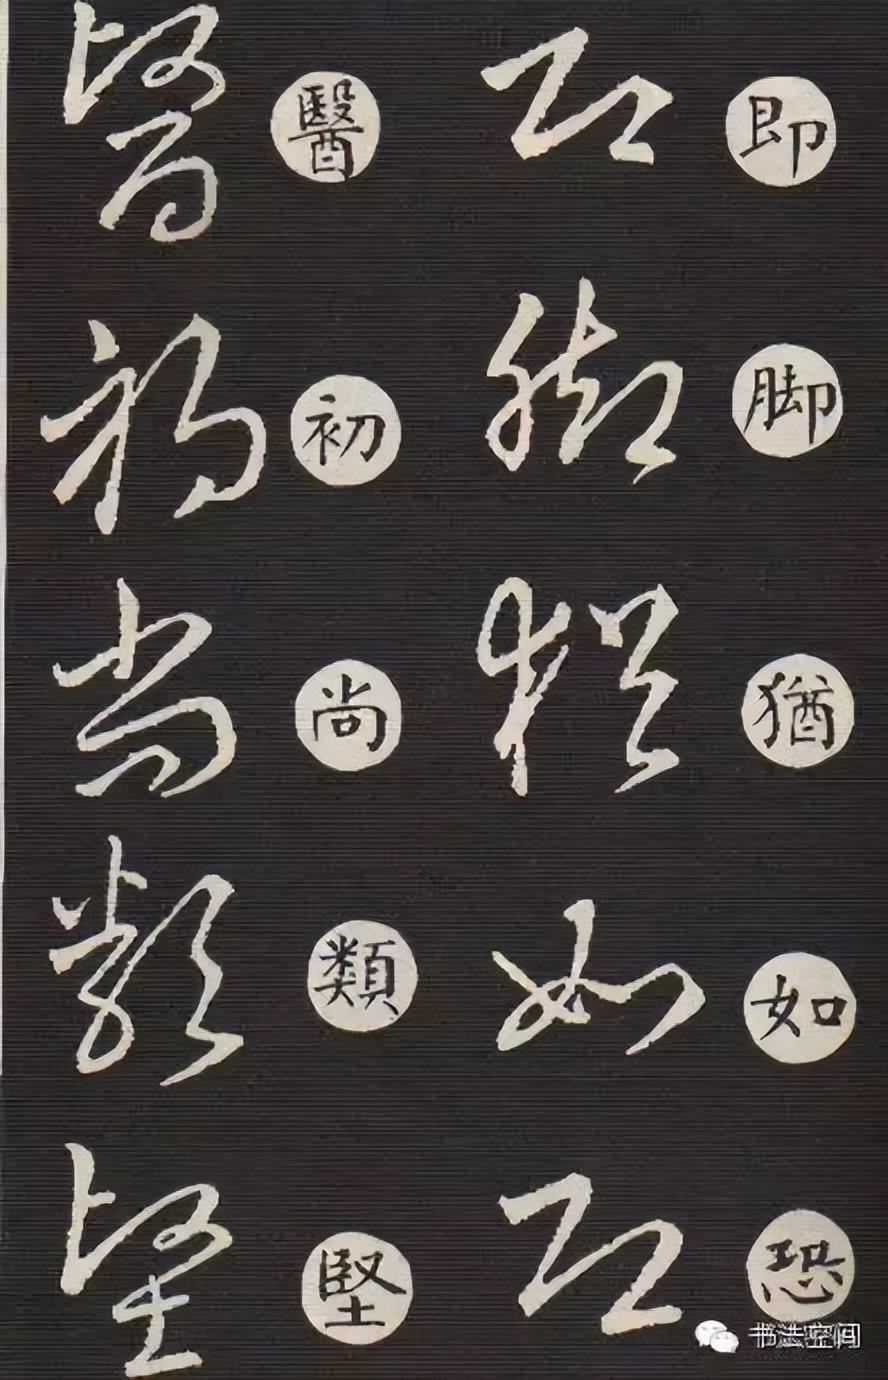 即脚猶如恐
醫初尚類堅
书法空间